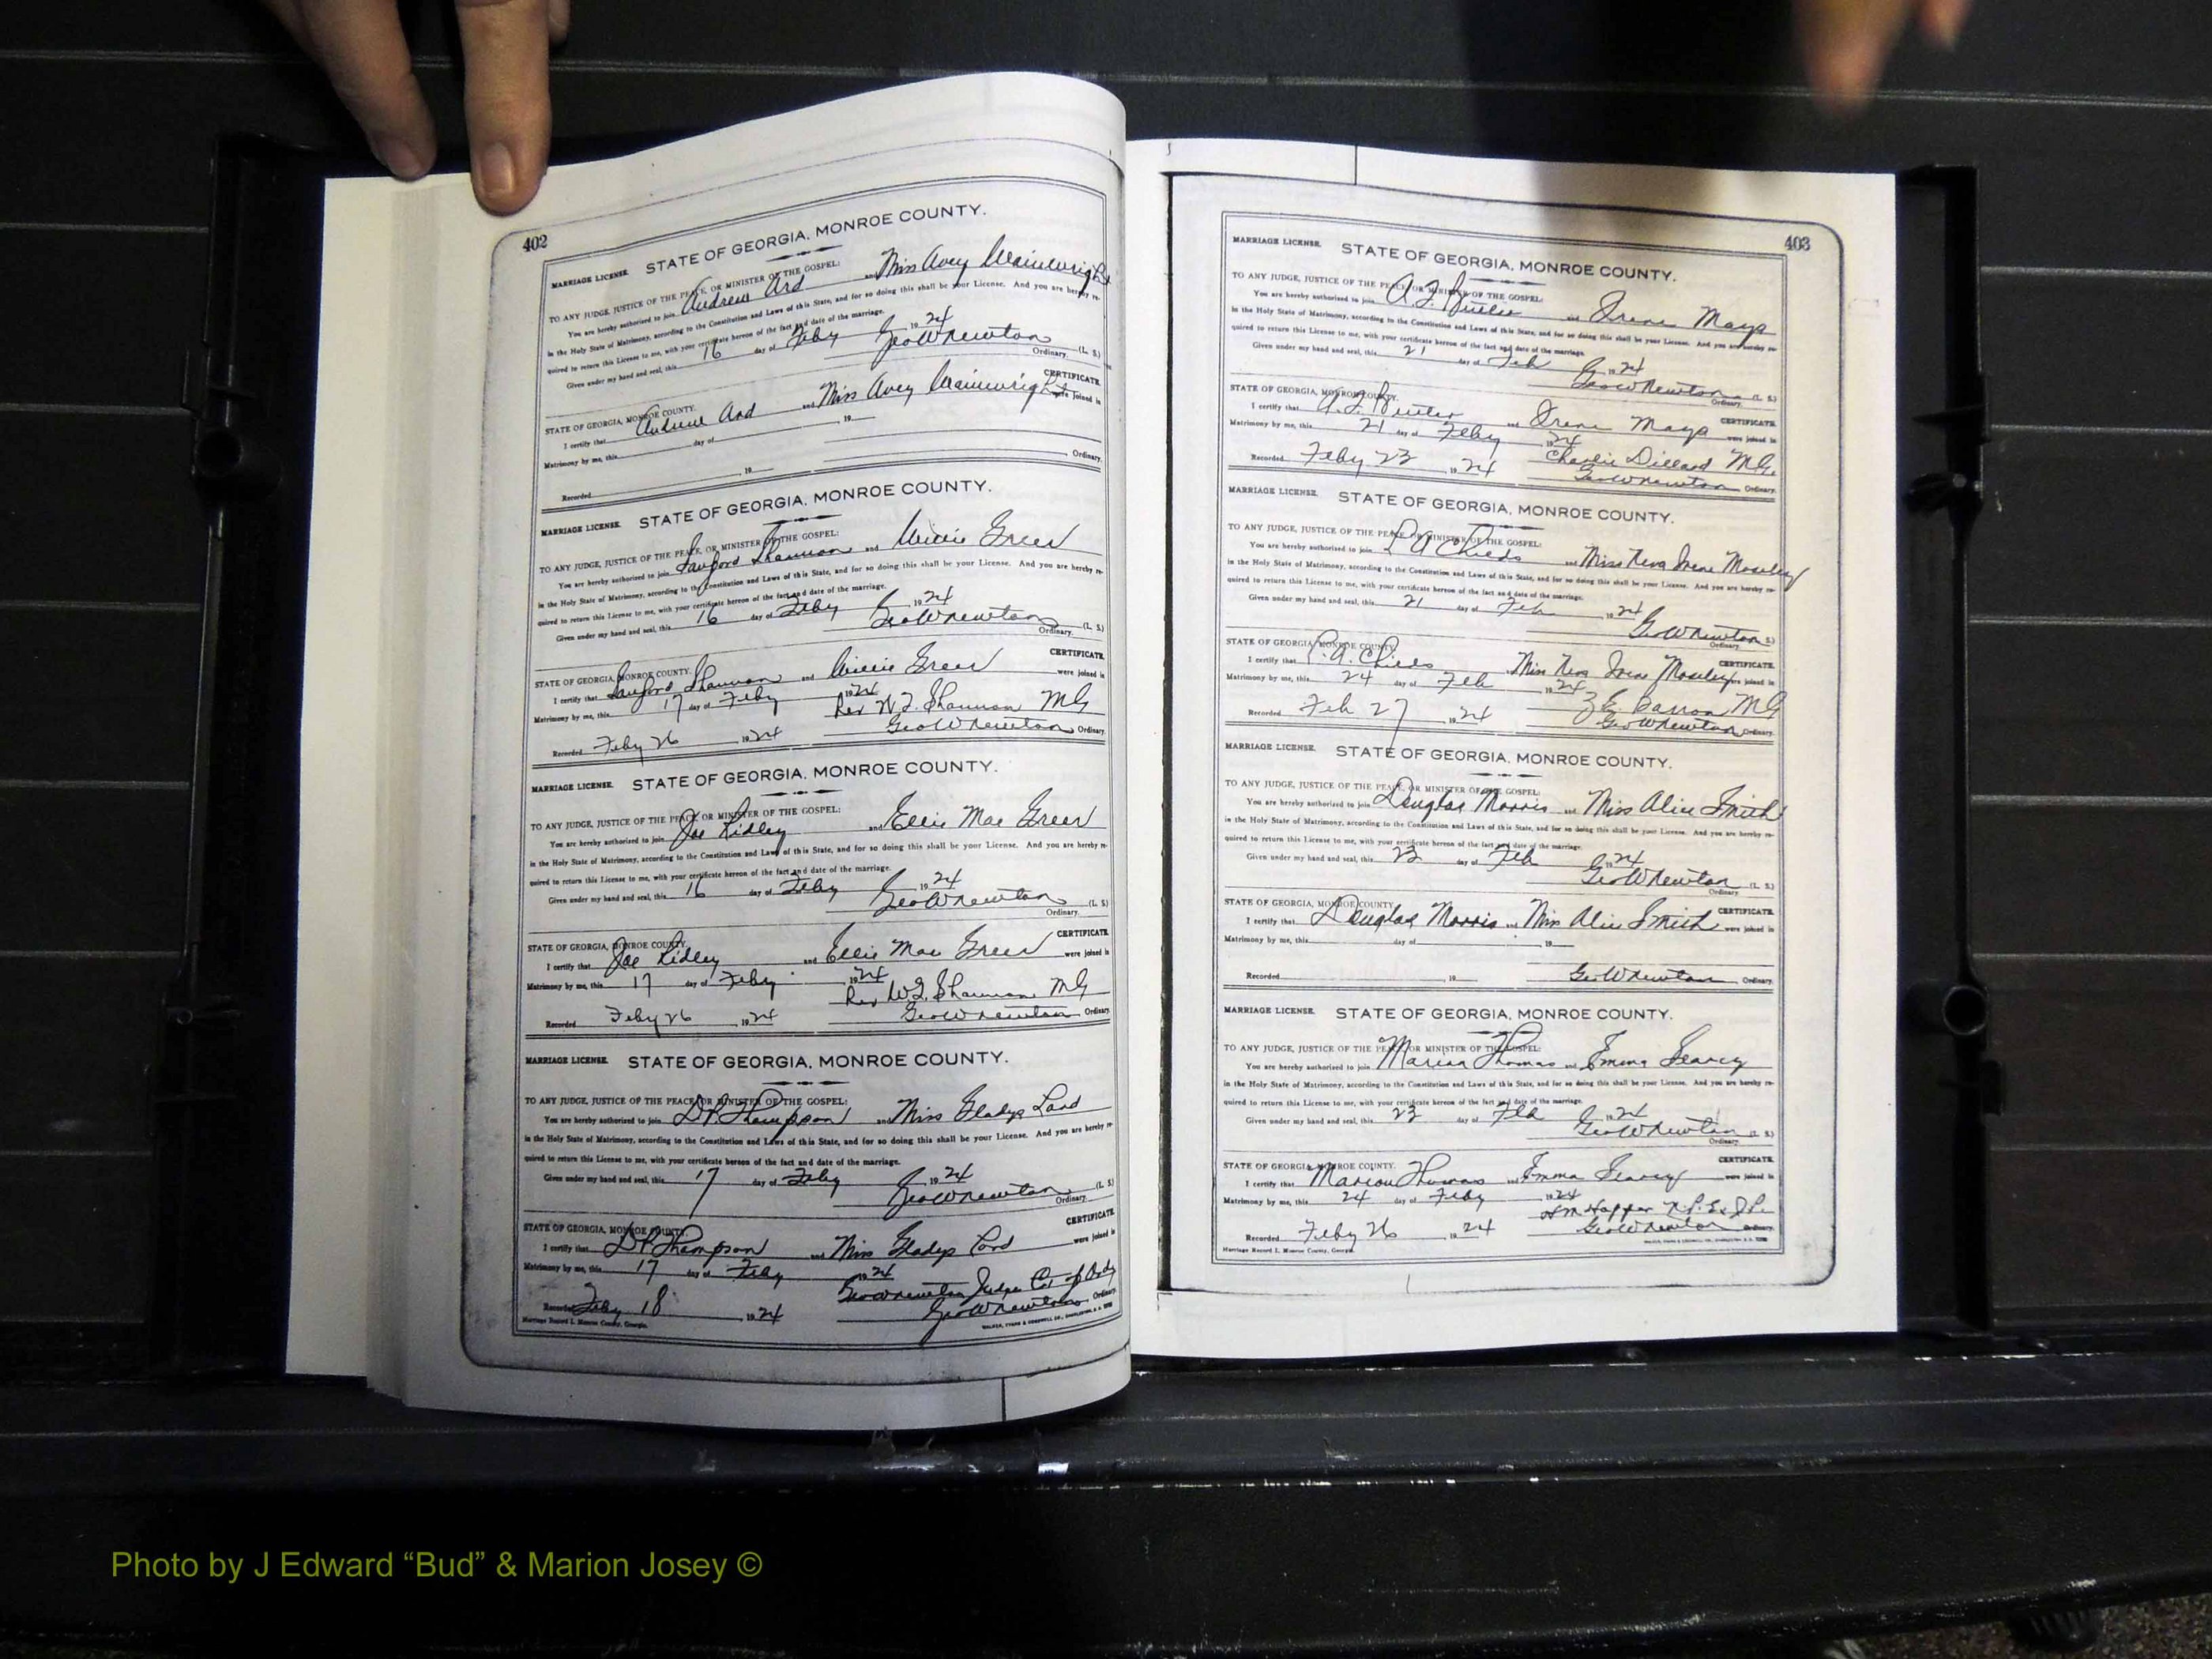 402
MARRIAGE LICENSE. STATE OF GEORGIA, MONROE COUNTY.
TO ANY JUDGE, JUSTICE OF THE PEACE, OR MINISTER OF THE GOSPEL:
You are hereby authorized to join Andrew Ard and Miss Avey Wainwright
in the Holy State of Matrimony, according to the Constitution and Laws of this State, and for so doing this shall be your License. And you are hereby re-
quired to return this License to me, with your certificate hereon of the fact and date of the marriage.
Given under my hand and seal, this 16 day of Feby 1924
Geo W Newton (L. S.)
Ordinary.
STATE OF GEORGIA, MONROE COUNTY. CERTIFICATE.
I certify that Andrew Ard and Miss Avey Wainwright were joined in
Matrimony by me, this day of , 19
Recorded , 19 Ordinary.
MARRIAGE LICENSE. STATE OF GEORGIA, MONROE COUNTY.
TO ANY JUDGE, JUSTICE OF THE PEACE, OR MINISTER OF THE GOSPEL:
You are hereby authorized to join Sanford Shannon and Willie Green
in the Holy State of Matrimony, according to the Constitution and Laws of this State, and for so doing this shall be your License. And you are hereby re-
quired to return this License to me, with your certificate hereon of the fact and date of the marriage.
Given under my hand and seal, this 16 day of Feby , 1924
Geo W Newton (L. S.)
Ordinary.
STATE OF GEORGIA, MONROE COUNTY. CERTIFICATE.
I certify that Sanford Shannon and Willie Green were joined in
Matrimony by me, this 17 day of Feby 1924
Rev Shannon MG
Recorded Feby 26 , 1924 Geo W Newton Ordinary.
MARRIAGE LICENSE. STATE OF GEORGIA, MONROE COUNTY.
TO ANY JUDGE, JUSTICE OF THE PEACE OR MINISTER OF THE GOSPEL:
You are hereby authorized to join Joe Ridley and Ellie Mae Green
in the Holy State of Matrimony, according to the Constitution and Laws of this State, and for so doing this shall be your License. And you are hereby re-
quired to return this License to me, with your certificate hereon of the fact and date of the marriage.
Given under my hand and seal, this 16 day of Feby , 1924
Geo W Newton (L. S.)
Ordinary.
STATE OF GEORGIA, MONROE COUNTY. CERTIFICATE.
I certify that Joe Ridley and Ellie Mae Green were joined in
Matrimony by me, this 17 day of Feby 1924
Rev Shannon MG
Recorded Feby 26 , 1924 Geo W Newton Ordinary.
MARRIAGE LICENSE. STATE OF GEORGIA, MONROE COUNTY.
TO ANY JUDGE, JUSTICE OF THE PEACE OR MINISTER OF THE GOSPEL:
You are hereby authorized to join D P Thompson and Miss Gladys Lord
in the Holy State of Matrimony, according to the Constitution and Laws of this State, and for so doing this shall be your License. And you are hereby re-
quired to return this License to me, with your certificate hereon of the fact and date of the marriage.
Given under my hand and seal, this 17 day of Feby , 1924
Geo W Newton (L. S.)
Ordinary.
STATE OF GEORGIA, MONROE COUNTY. CERTIFICATE.
I certify that D P Thompson and Miss Gladys Lord were joined in
Matrimony by me, this 17 day of Feby 1924
Geo W Newton Judge Ct of Ordy
Recorded Feby 18 , 1924 Geo W Newton Ordinary.
Marriage Record L Monroe County, Georgia.
403
MARRIAGE LICENSE. STATE OF GEORGIA, MONROE COUNTY.
TO ANY JUDGE, JUSTICE OF THE PEACE, OR MINISTER OF THE GOSPEL:
You are hereby authorized to join Butler and Irene Mays
in the Holy State of Matrimony, according to the Constitution and Laws of this State, and for so doing this shall be your License. And you are hereby re-
quired to return this License to me, with your certificate hereon of the fact and date of the marriage.
Given under my hand and seal, this 21 day of Feb , 1924
Geo W Newton (L. S.)
Ordinary.
STATE OF GEORGIA, MONROE COUNTY. CERTIFICATE.
I certify that Butler and Irene Mays were joined in
Matrimony by me, this 21 day of Feby 1924
Charlie Dillard MG.
Recorded Feby 23 , 1924 Geo W Newton Ordinary.
MARRIAGE LICENSE. STATE OF GEORGIA, MONROE COUNTY.
TO ANY JUDGE, JUSTICE OF THE PEACE, OR MINISTER OF THE GOSPEL:
You are hereby authorized to join A Childs Miss Irene Moseley
in the Holy State of Matrimony, according to the Constitution and Laws of this State, and for so doing this shall be your License. And you are hereby re-
quired to return this License to me, with your certificate hereon of the fact and date of the marriage.
Given under my hand and seal, this 21 day of Feb , 1924
Geo W Newton S.)
Ordinary.
STATE OF GEORGIA, MONROE COUNTY. CERTIFICATE.
I certify that A. Childs Miss Irene Moseley were joined in
Matrimony by me, this 24 day of Feb 1924
Barron MG
Recorded Feb 27 , 1924 Geo W Newton Ordinary.
MARRIAGE LICENSE. STATE OF GEORGIA, MONROE COUNTY.
TO ANY JUDGE, JUSTICE OF THE PEACE, OR MINISTER OF THE GOSPEL:
You are hereby authorized to join Douglas Morris and Miss Alice Smith
in the Holy State of Matrimony, according to the Constitution and Laws of this State, and for so doing this shall be your License. And you are hereby re-
quired to return this License to me, with your certificate hereon of the fact and date of the marriage.
Given under my hand and seal, this 23 day of Feb , 1924
Geo W Newton (L. S.)
Ordinary.
STATE OF GEORGIA, MONROE COUNTY. CERTIFICATE.
I certify that Douglas Morris and Miss Alice Smith were joined in
Matrimony by me, this day of , 19
Recorded , 19 Geo W Newton Ordinary.
MARRIAGE LICENSE. STATE OF GEORGIA, MONROE COUNTY.
TO ANY JUDGE, JUSTICE OF THE PEACE OR MINISTER OF THE GOSPEL:
You are hereby authorized to join Marion Thomas and Emma Searcy
in the Holy State of Matrimony, according to the Constitution and Laws of this State, and for so doing this shall be your License. And you are hereby re-
quired to return this License to me, with your certificate hereon of the fact and date of the marriage.
Given under my hand and seal, this 23 day of Feb , 1924
Geo W Newton (L. S.)
Ordinary.
STATE OF GEORGIA, MONROE COUNTY. CERTIFICATE.
I certify that Marion Thomas and Emma Searcy were joined in
Matrimony by me, this 24 day of Feby 1924
N.P. Ex J.P.
Recorded Feby 26 , 1924 Geo W Newton Ordinary.
Marriage Record L Monroe County, Georgia.
Photo by J Edward “Bud” & Marion Josey ©